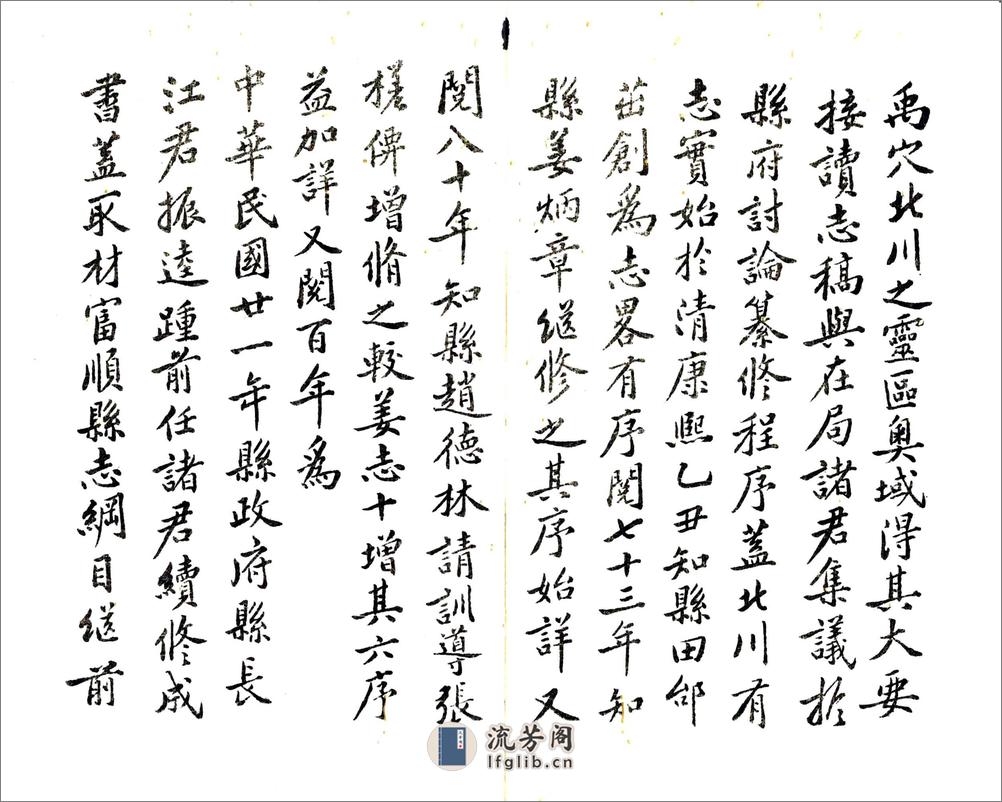 禹穴北川之靈區奧域得其大要
接讀志稿與在局諸君集議於
縣府討論纂修程序蓋北川有
志實始於清康熙乙丑知縣田邰
茁創爲志畧有序閱七十三年知
縣姜炳章繼修之其序始詳又
閱八十年知縣趙德林請訓導張
櫏俾增脩之較姜志十增其六序
益加詳又閱百年爲
中華民國廿一年縣政府縣長
江君振逵踵前任諸君續修成
書蓋取材富順縣志綱目繼前
流芳阁
lfglib.cn